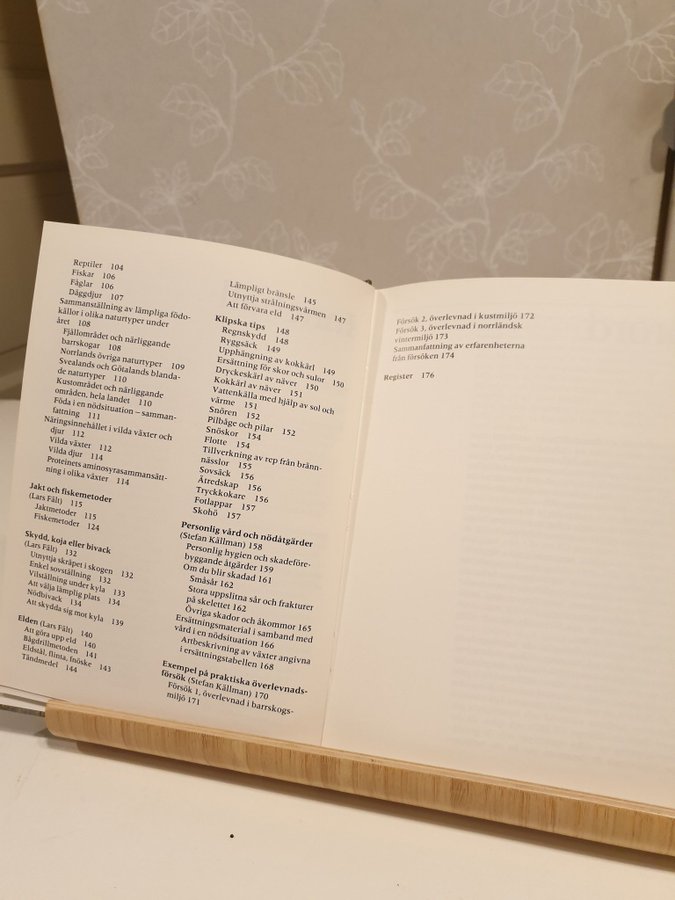 Reptiler 104
Fiskar 106
Fåglar 106
Däggdjur 107
Sammanställning av lämpliga födo-
källor i olika naturtyper under
året 108
Fjällområdet och närliggande
barrskogar 108
Norrlands övriga naturtyper 109
Svealands och Götalands blanda-
de naturtyper 110
Kustområdet och närliggande
områden, hela landet 110
Föda i en nödsituation – samman-
fattning 111
Näringsinnehållet i vilda växter och
djur 112
Vilda växter 112
Vilda djur 114
Proteinets aminosyrasammansätt-
ning i olika växter 114
Jakt och fiskemetoder
(Lars Fält) 115
Jaktmetoder 115
Fiskemetoder 124
Skydd, koja eller bivack
(Lars Fält) 132
Utnyttja skräpet i skogen 132
Enkel sovställning 132
Vilställning under kyla 133
Att välja lämplig plats 134
Nödbivack 134
Att skydda sig mot kyla 139
Elden (Lars Fält) 140
Att göra upp eld 140
Bågdrillmetoden 141
Eldstål, flinta, fnöske 143
Tändmedel 144
Lämpligt bränsle 145
Utnyttja strålningsvärmen 147
Att förvara eld 147
Klipska tips 148
Regnskydd 148
Ryggsäck 149
Upphängning av kokkärl 149
Ersättning för skor och sulor 150
Dryckeskärl av näver 150
Kokkärl av näver 151
Vattenkälla med hjälp av sol och
värme 151
Snören 152
Pilbåge och pilar 152
Snöskor 154
Flotte 154
Tillverkning av rep från bränn-
nässlor 155
Sovsäck 156
Ätredskap 156
Tryckkokare 156
Fotlappar 157
Skohö 157
Personlig vård och nödåtgärder
(Stefan Källman) 158
Personlig hygien och skadeföre-
byggande åtgärder 159
Om du blir skadad 161
Småsår 162
Stora uppslitna sår och frakturer
på skelettet 162
Övriga skador och åkommor 165
Ersättningsmaterial i samband med
vård i en nödsituation 166
Artbeskrivning av växter angivna
i ersättningstabellen 168
Exempel på praktiska överlevnads-
försök (Stefan Källman) 170
Försök 1, överlevnad i barrskogs-
miljö 171
Försök 2, överlevnad i kustmiljö 172
Försök 3, överlevnad i norrländsk
vintermiljö 173
Sammanfattning av erfarenheterna
från försöken 174
Register 176